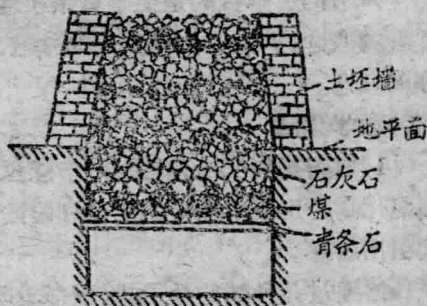 土坯墙
地平面
石灰石
煤
青条石